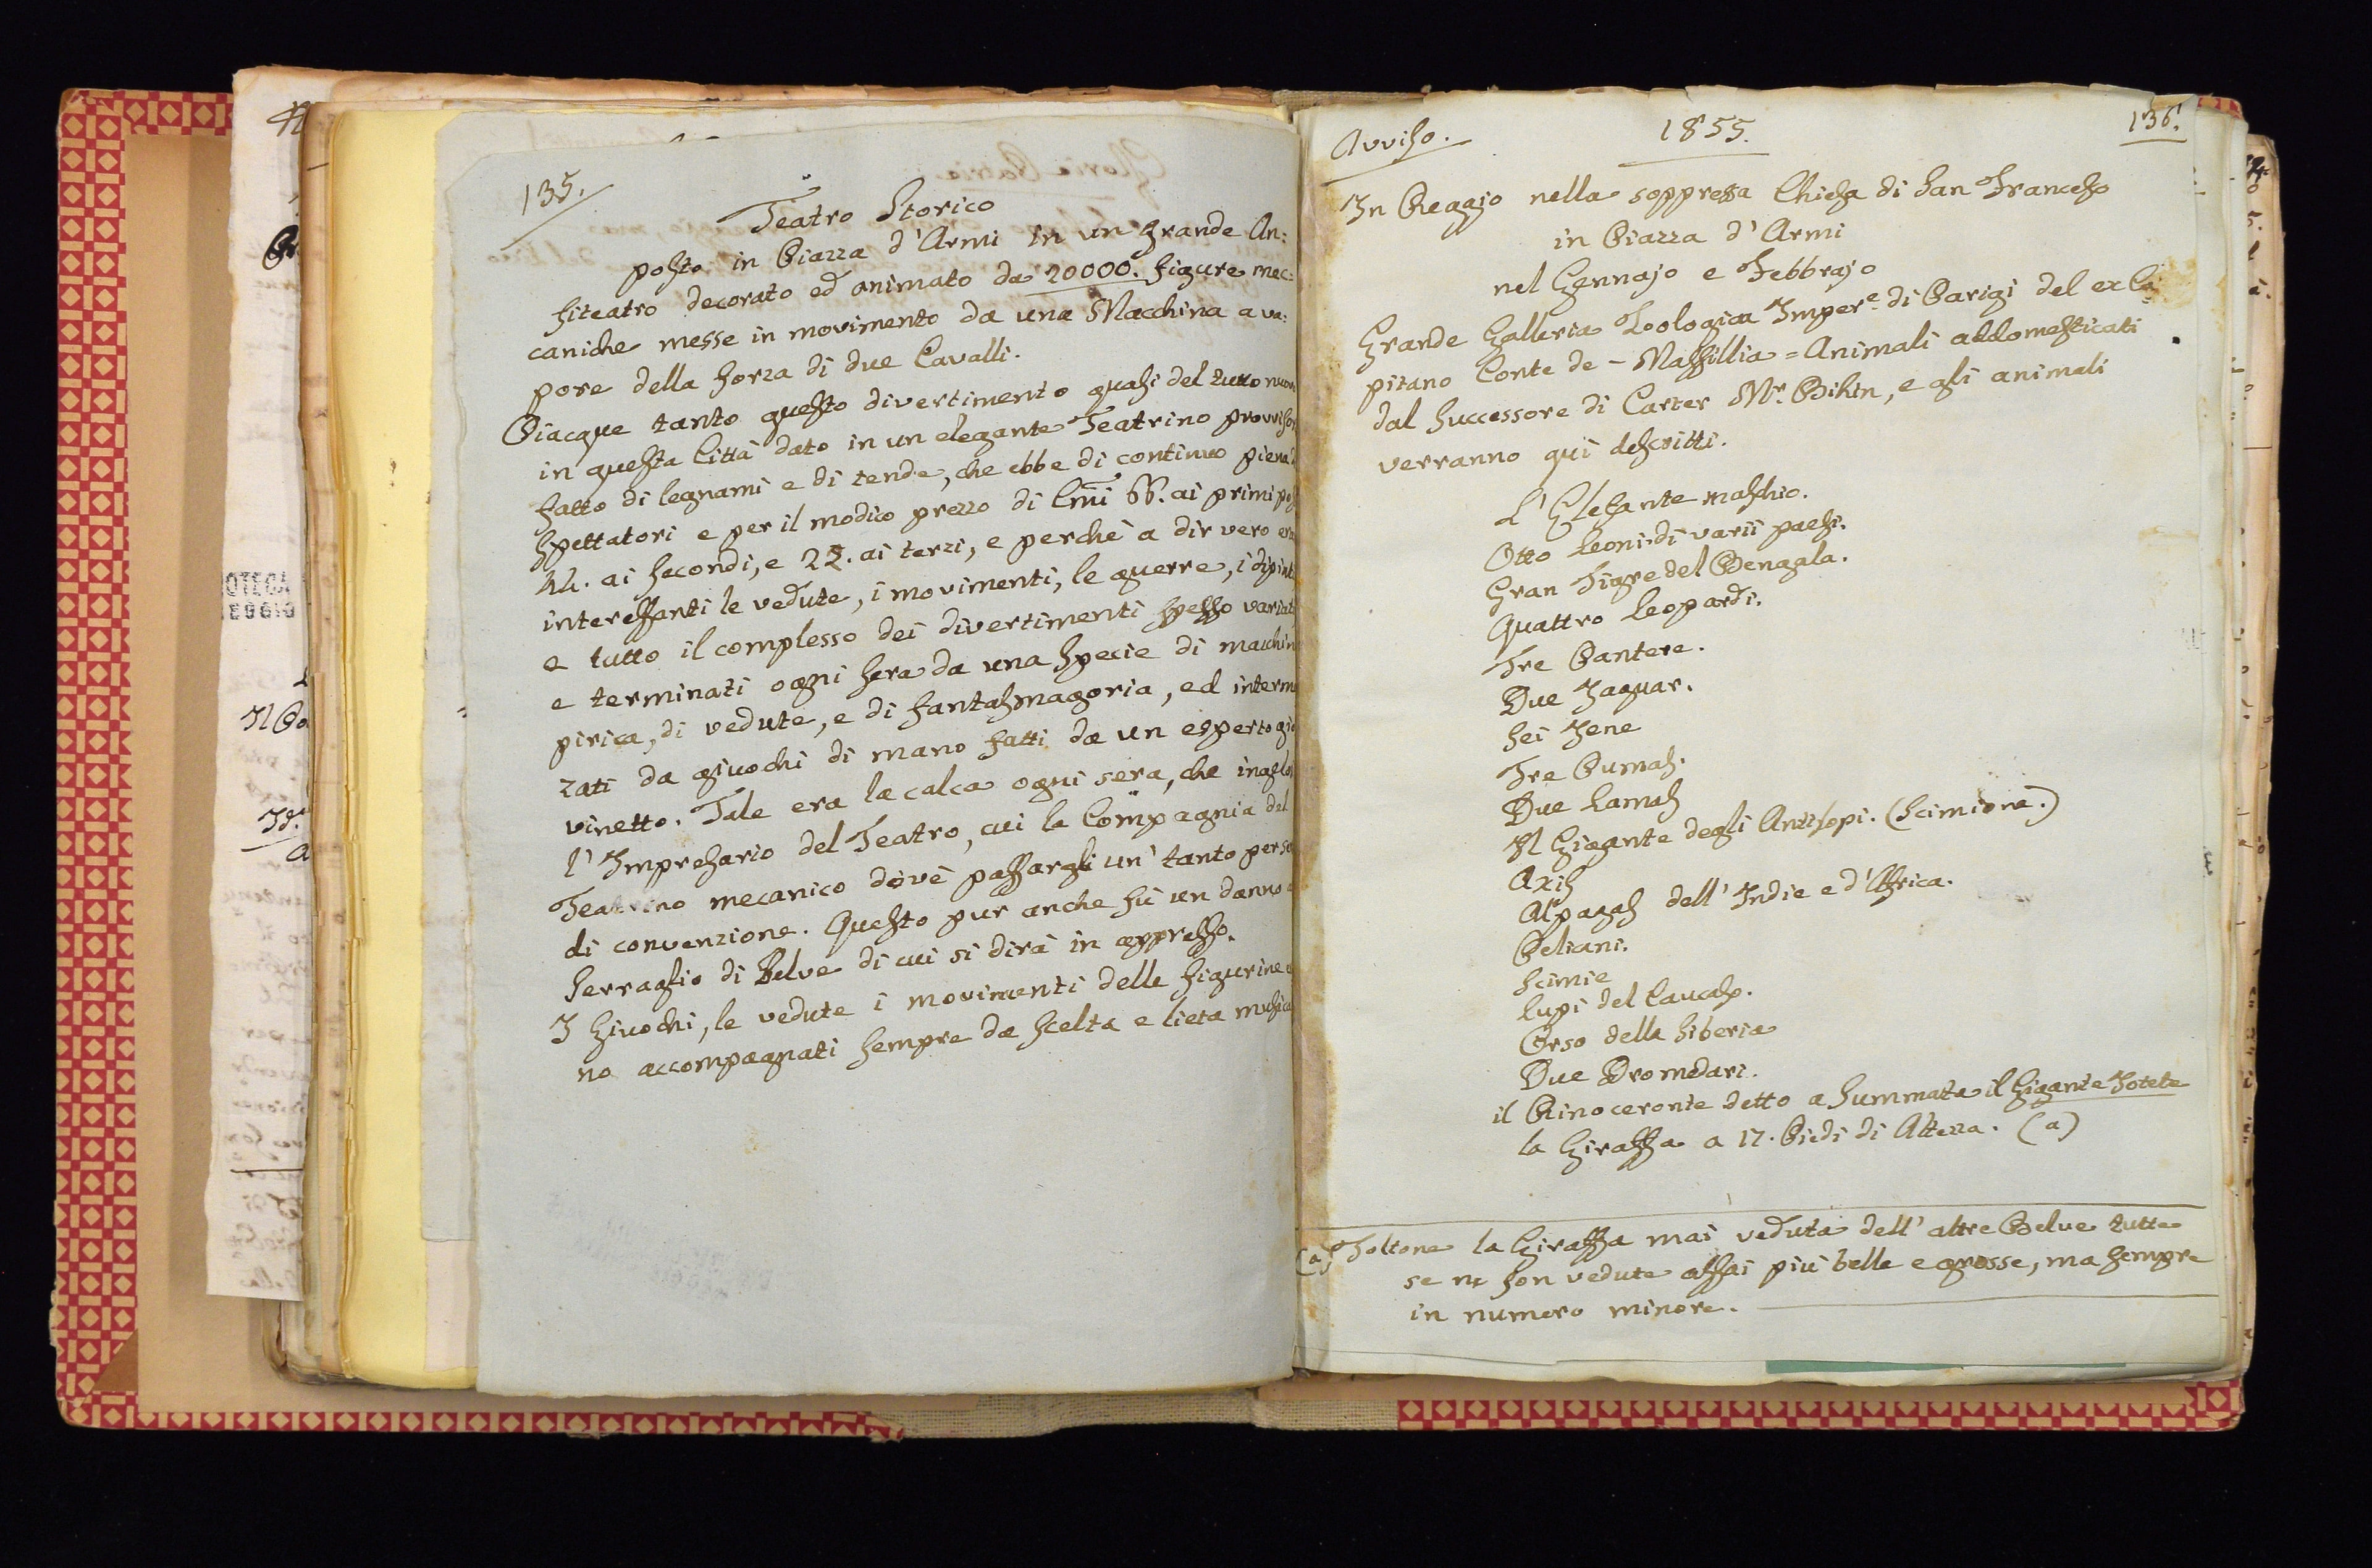 135.
Teatro Storico
posto in Piazza d'Armi in un grande An:
fiteatro decorato ed animato da 20000. figure mec:
caniche messe in movimento da una Macchina a va:
pore della forza di due Cavalli.
Piacque tanto questo divertimento quasi del tutto
in questa Città dato in un elegante Teatrino
fatto di legnami e di tende, che ebbe di continuo
spettatori e per il modico prezzo di Cmi 66. ai primi
44. ai secondi, e 22. ai terzi, e perchè a dir vero
interessanti le vedute, i movimenti, le guerre, i
e tutto il complesso dei divertimenti spesso
e terminati ogni sera da una specie di
pirica, di vedute, e di fantasmagoria, ed
zati da givochi di mano fatti da un esperto
vinetto. Tale era la calca ogni sera, che
l'Impresario del Teatro, cui la Compagnia del
Teatrino mecanico dovè passargli un' tanto per
di convenzione. Questo pur anche fù un danno
Serraglio di Belve di cui si dirà in appresso.
I Givochi, le vedute i movimenti delle figurine
no accompagnati sempre da scelta e lieta
Avviso. 1855. 136.
In Reggio nella soppressa Chiesa di San Francesco
in Piazza d'Armi
nel Gennajo e Febbrajo
Grande Galleria Zoologica Imper.e di Parigi del ex Ca:
pitano Conte de - Massillia = Animali addomesticati
dal Successore di Carter Mr. Bihin, e gli animali
verranno quì descritti.
L'Elefante maschio.
Otto Leoni di varii paesi.
Gran Tigre del Bengala.
Quattro Leopardi.
Tre Pantere.
Due Jaguar.
Sei Jene
Tre Pumas.
Due Lamas
Il Gigante degli Antilopi. (Scimione.)
Axis
Alpagas dell'Indie e d'Affrica.
Pelicani.
Scimie
Lupi del Caucaso.
Orso della Siberia
Due Dromedari.
il Rinoceronte detto a Summata il Gigante
la Giraffa a 17. Piedi di Altezza. (a)
(a) Toltone la Giraffa mai veduta dell'altre Belve tutte
se ne son vedute assai più belle e grosse, ma sempre
in numero minore.